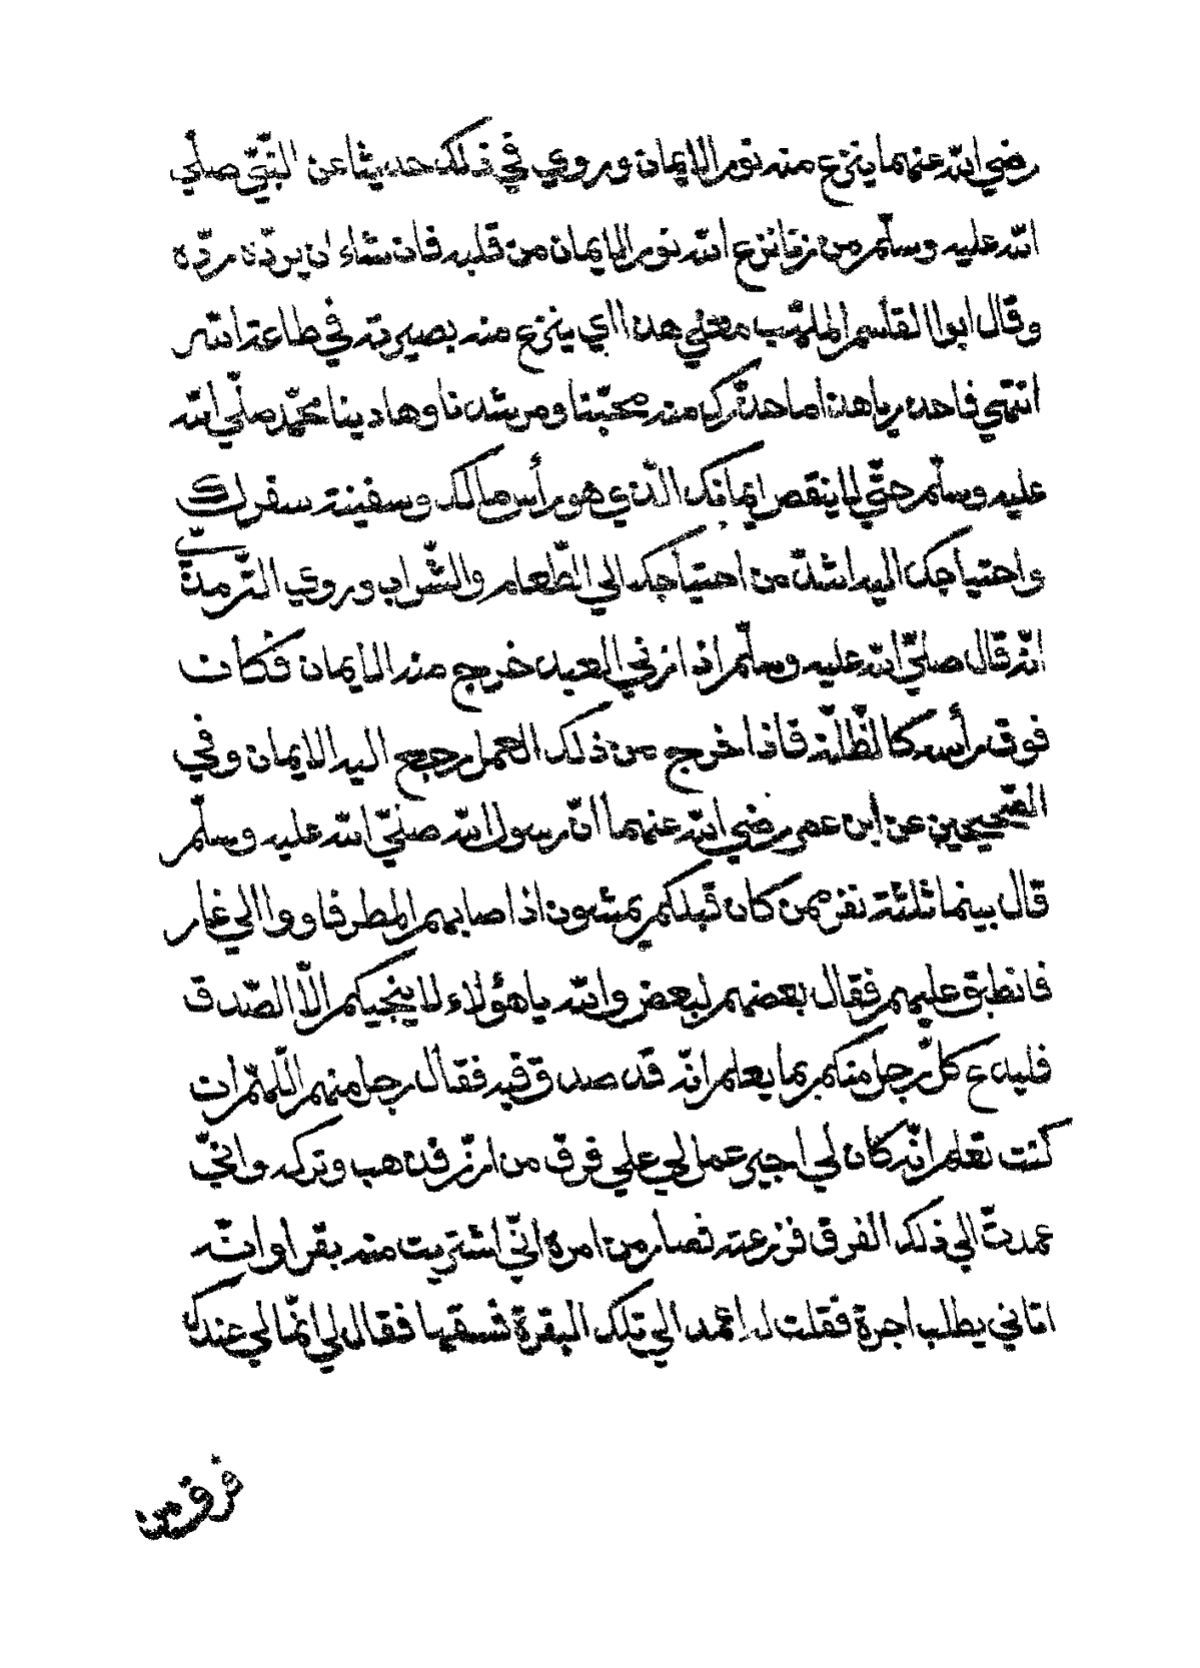 رضي الله عنهما ينزع منه نور الايمان وروي في ذلك حديثا عن النّبيّ صلّي
الله عليه وسلّم من زنا نزع الله نور الايمان من قلبه فان شاء ان يردّه ردّه
وقال ابوا القٰسم المهلّب معنٰي هذا اي ينزع منه بصيرته في طاعة الله
انتهي فاحذر يا هذا ما حذّرك منه محبّنا ومرشدنا وهادينا محمّد صلّي الله
عليه وسلّم حتّي لا ينقص ايمانك الّذي هو رأس مالك وسفينة سفرك
واحتياجك اليه اشدّ من احتياجك الي الطّعام والشّراب وروي التّرمذيّ
انّه قال صلّي الله عليه وسلّم اذا زني العبد خرج منه الايمان فكان
فوق رأسه كالظّلّة فاذا خرج من ذلك العمل رجع اليه الايمان وفي
الصّحيحين عن إبن عمر رضي الله عنهما أنّ رسول الله صلّي الله عليه وسلّم
قال بينما ثلثة نفر ممن كان قبلكم يمشون اذا صابهم المطر فاووا الي غار
فانطبق عليهم فقال بعضهم لبعض والله يا هؤلاء لا ينجيكم الّا الصّدق
فليدع كلّ رجل منكم بما يعلم انّه قد صدق فيه فقال رجل منهم اللّهمّ ان
كنت تعلم انّه كان لي اجير عمل لي علي فرق من ارزّ فذهب وتركه وانّي
عمدتّ الي ذلك الفرق فزرعته فصار من امره انّي اشتريت منه بقرا وانّه
اتاني يطلب أجرة فقلت له إعمد الي تلك البقرة فسقها فقال لي انّما لي عندك
فرق من